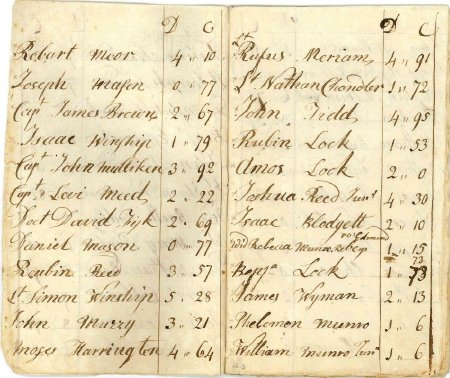 D C
Robart Moor 4 10
Joseph Mason 0 77
Capt James Brown 2 67
Isaac Winship 1 79
Capt John Mulliken 3 92
Capt Levi Meed 2 22
Doct David Fisk 2 69
Daniel Mason 0 77
Reubin Reed 3 57
Lt Simon Winship 5 28
John Muzzy 3 21
Moses Harrington 4 64
D C
Lt Rufus Meriam 4 91
Lt Nathan Chandler 1 72
John Tidd 4 95
Rubin Lock 1 53
Amos Lock 2 0
Joshua Reed Junr 4 30
Isaac Blodgett 2 10
Edmund
Rebeca Munro 1 15
73
Benja Lock 1 73
James Wyman 2 13
Phelemon Munro 1 6
William Munro Junr 1 6